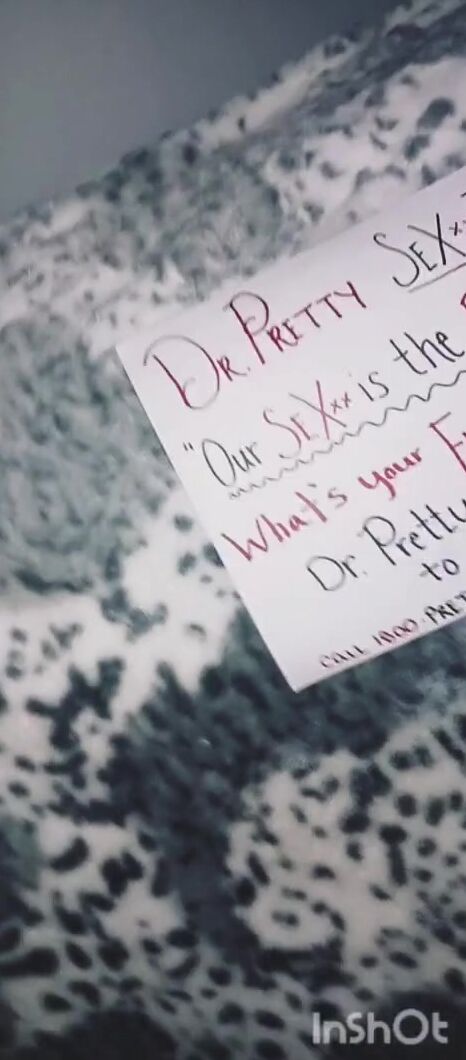 DR. PRETTY SEXxx
"Our SEXxx is the
What's your
Dr. Pretty
to
CALL 1800-PRET
InShOt